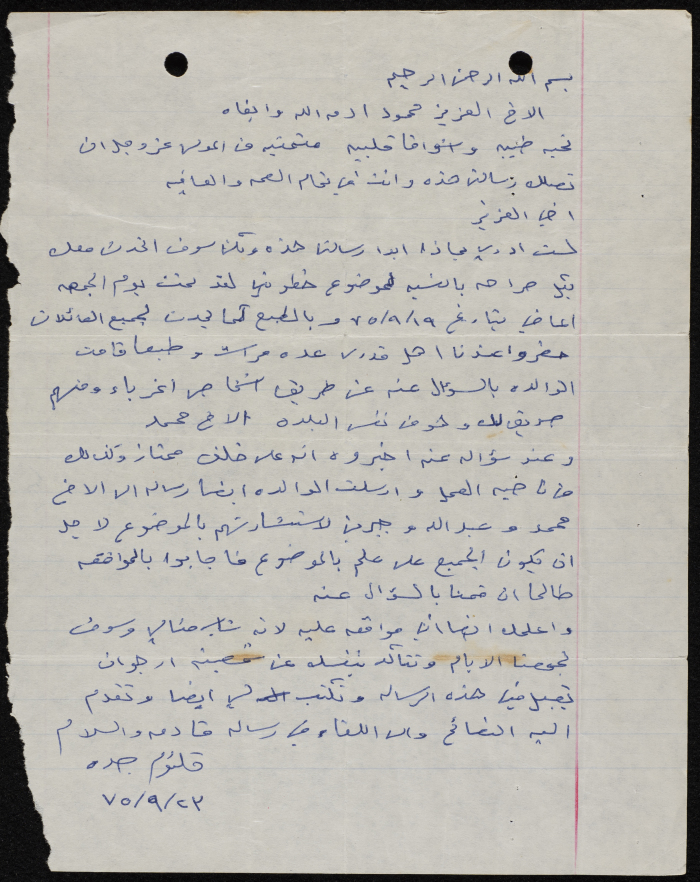 بسم الله الرحمن الرحيم
الاخ العزيز محمود ادمه الله وابقاه
تحيه طيبه واشواقا قلبيه متمنيه من المولى عز وجل ان
تصلك رسالتي هذه وانت في تمام الصحه والعافيه
اخي العزيز
لست ادري بماذا ابدا رسالتي هذه ولكن سوف اتحدث معك
بكل صراحه بالنسبه لموضوع خطوبتي لقد تمت يوم الجمعه
الماضي بتاريخ ٧٥/٩/١٩ و بالطبع كما يحدث لجميع العائلات
حضروا عندنا اهل قدري عده مرات و طبعا قامت
الوالده بالسؤال عنه عن طريق اشخاص اغرباء ومنهم
صديق لك و هو من نفس البلده الاخ محمد
و عند سؤاله عنه اخبروه انه على خلق ممتاز وكذلك
من ناحيه العمل و ارسلت الوالده ايضا رساله الى الاخ
محمد و عبد الله و جبرين لاستشارتهم بالموضوع لاجل
ان يكون الجميع على علم بالموضوع فاجابوا بالموافقه
طالما ان قمنا بالسؤال عنه
و اعلمك ايضا اني موافقه عليه لانه شاب مثالي وسوف
تجمعنا الايام وتتأكد بنفسك عن ارجوا ان
تقبل مني هذه الرساله وتكتب لي ايضا وتقدم
اليه النصائح والى اللقاء في رساله قادمه والسلام
كلثوم جده
٧٥/٩/٢٣